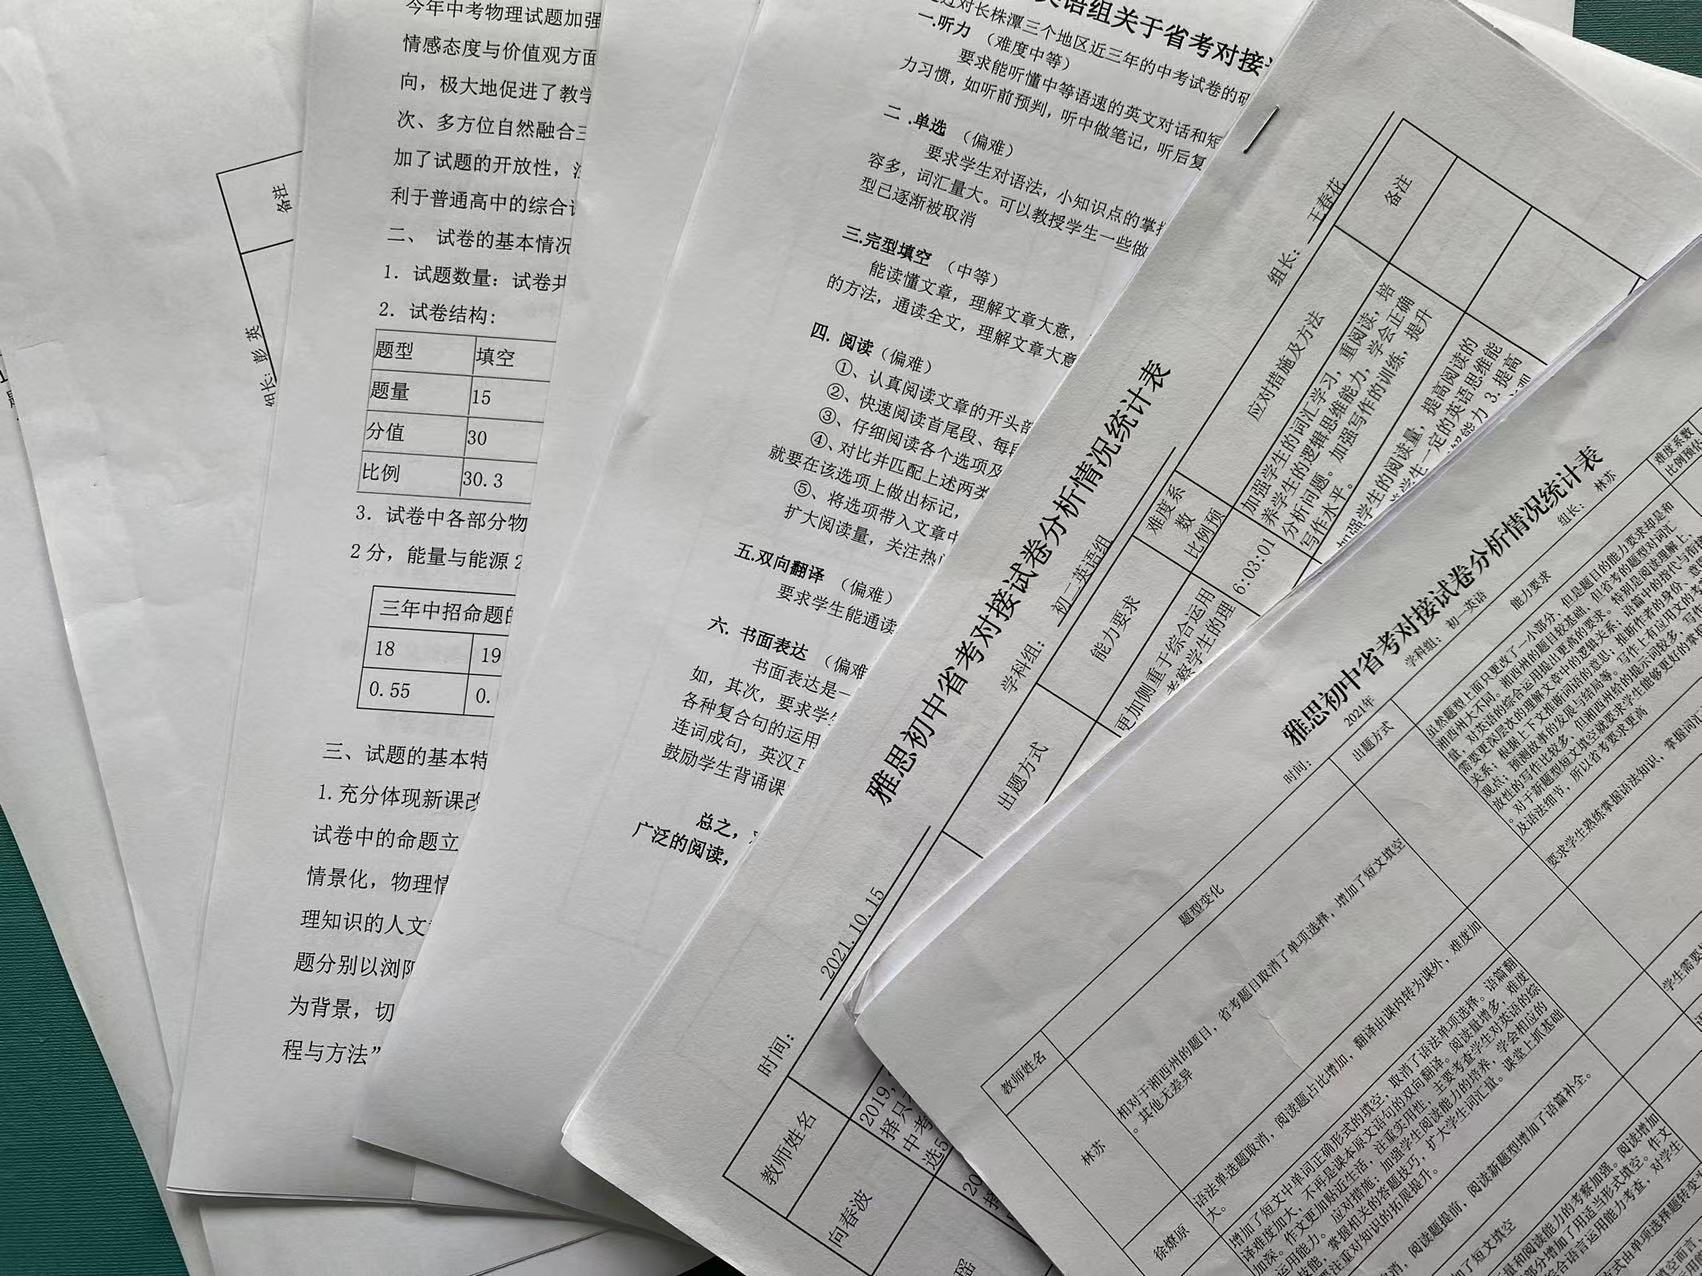 备注
组长：彭 英
今年中考物理试题加强
情感态度与价值观方面
向，极大地促进了教学
次、多方位自然融合三
加了试题的开放性，
利于普通高中的综合
二、 试卷的基本情况
1. 试题数量：试卷共
2. 试卷结构：
题型 填空
题量 15
分值 30
比例 30.3
3. 试卷中各部分物
2分，能量与能源2
三年中招命题的
18 19
0.55 0.
三、试题的基本特
1.充分体现新课改
试卷中的命题立
情景化，物理情
理知识的人文
题分别以浏阳
为背景，切
程与方法”
英语组关于省考对接
通过对长株潭三个地区近三年的中考试卷的研
一.听力 （难度中等）
要求能听懂中等语速的英文对话和短
力习惯，如听前预判，听中做笔记，听后复
二.单选 （偏难）
要求学生对语法，小知识点的掌握
容多，词汇量大。可以教授学生一些做
型已逐渐被取消
三.完型填空 （中等）
能读懂文章，理解文章大意，
的方法，通读全文，理解文章大意
四. 阅读（偏难）
①、认真阅读文章的开头部
②、快速阅读首尾段、每段
③、仔细阅读各个选项及
④、对比并匹配上述两类
就要在该选项上做出标记，
⑤、将选项带入文章中
扩大阅读量，关注热
五.双向翻译 （偏难）
要求学生能通读
六. 书面表达 （偏难
书面表达是一
如，其次，要求学
各种复合句的运用
连词成句，英汉互
鼓励学生背诵课
总之，
广泛的阅读，
雅思初中省考对接试卷分析情况统计表
时间： 2021.10.15 学科组： 初二英语组 组长： 王春花
教师姓名 出题方式 能力要求 难度系数 比例预 应对措施及方法 备注
向春波
2019,
择只
中考
选5
更加侧重于综合运用
考察学生的理
6:03:01
加强学生的词汇学习，重阅读，培
养学生的逻辑思维能力，学会正确
分析问题。加强写作的训练，提升
写作水平。
加强学生的阅读量，提高阅读的
一定的英语思维能
解能力 3.提高
瑶
雅思初中省考对接试卷分析情况统计表
时间： 2021年 学科组： 初一英语 组长： 林苏
教师姓名 题型变化 出题方式 能力要求 难度系数 比例预估
林苏
相对于湘西州的题目，省考题目取消了单项选择，增加了短文填空
。其他无差异
虽然题型上面只更改了一小部分，但是题目的能力要求却是和
湘西州大不同。湘西州的题目较基础，但省考的题型对词汇
量，对英语的综合运用提出更高的要求。特别是阅读理解上，
需要更深层次的理解文章中的逻辑关系；语篇中的替代与衔接
关系；根据上下文推断词语的意思；推断作者的身份、意图
观点；预测故事的发展与结局等。写作上有应用文的
放性的写作比较多，但湘西州给的提示词较多，写
。对于新题型短文填空就要求学生能够更好的掌
及语法细节，所以省考要求更高
徐燎原
语法单选题取消，阅读题占比增加，翻译由课内转为课外，难度加
大。
要求学生熟练掌握语法知识，掌握词汇
增加了短文中单词正确形式的填空，取消了语法单项选择。语篇翻
译难度加大，不再是课本原文语句的双向翻译。阅读量增多，难度
加深。作文更加贴近生活，注重实用性，主要考查学生对英语的综
运用能力。应对措施：加强学生阅读能力的培养，学会相应的
技能，掌握相关的答题技巧，扩大学生词汇量。课堂上抓基础
注重对知识的拓展提升。
学生需要
，阅读题提前，阅读新题型增加了语篇补全。
了短文填空
量和阅读能力的考察加强。阅读增加
部分增加了用适当形式填空。作文
综合语言运用能力考查，对学生
方式由单项选择题转变